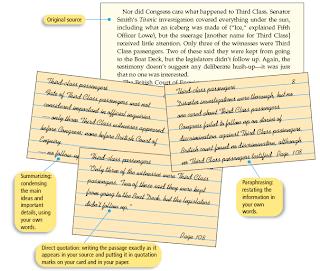 Original source
Nor did Congress care what happened to Third Class. Senator
Smith's Titanic investigation covered everything under the sun,
including what an iceberg was made of ("Ice," explained Fifth
Officer Lowe), but the steerage [another name for Third Class]
received little attention. Only three of the witnesses were Third
Class passengers. Two of these said they were kept from going
to the Boat Deck, but the legislators didn't follow up. Again, the
testimony doesn't suggest any deliberate hush-up—it was just
that no one was interested.
The British Court of
Third-class passengers
Fate of Third Class passengers was not
considered important in official inquiries
— only three Third Class witnesses appeared
before Congress, none before British Court of
Inquiry
— no follow up
8
Third Class passengers
"Disaster investigations were thorough, but no
one cared about Third Class passengers.
Congress failed to follow up on stories of
discrimination against Third Class passengers.
British court found no discrimination, although
no Third Class passengers testified. Page 108
Third-class passengers
"Only three of the witnesses were Third Class
passengers. Two of these said they were kept
from going to the Boat Deck, but the legislators
didn't follow up."
Page 108
Summarizing:
condensing
the main
ideas and
important
details, using
your own
words.
Paraphrasing:
restating the
information in
your own
words.
Direct quotation: writing the passage exactly as it
appears in your source and putting it in quotation
marks on your card and in your paper.